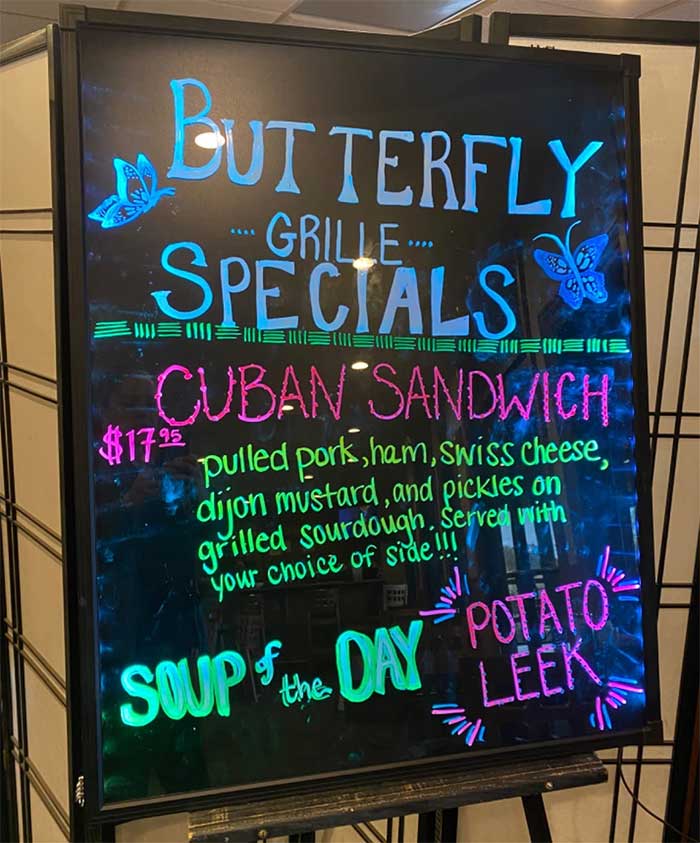 BUTTERFLY
GRILLE
SPECIALS
CUBAN SANDWICH
$17.95
pulled pork, ham, swiss cheese,
dijon mustard, and pickles on
grilled sourdough. Served with
your choice of side!!!
SOUP of the DAY
POTATO
LEEK